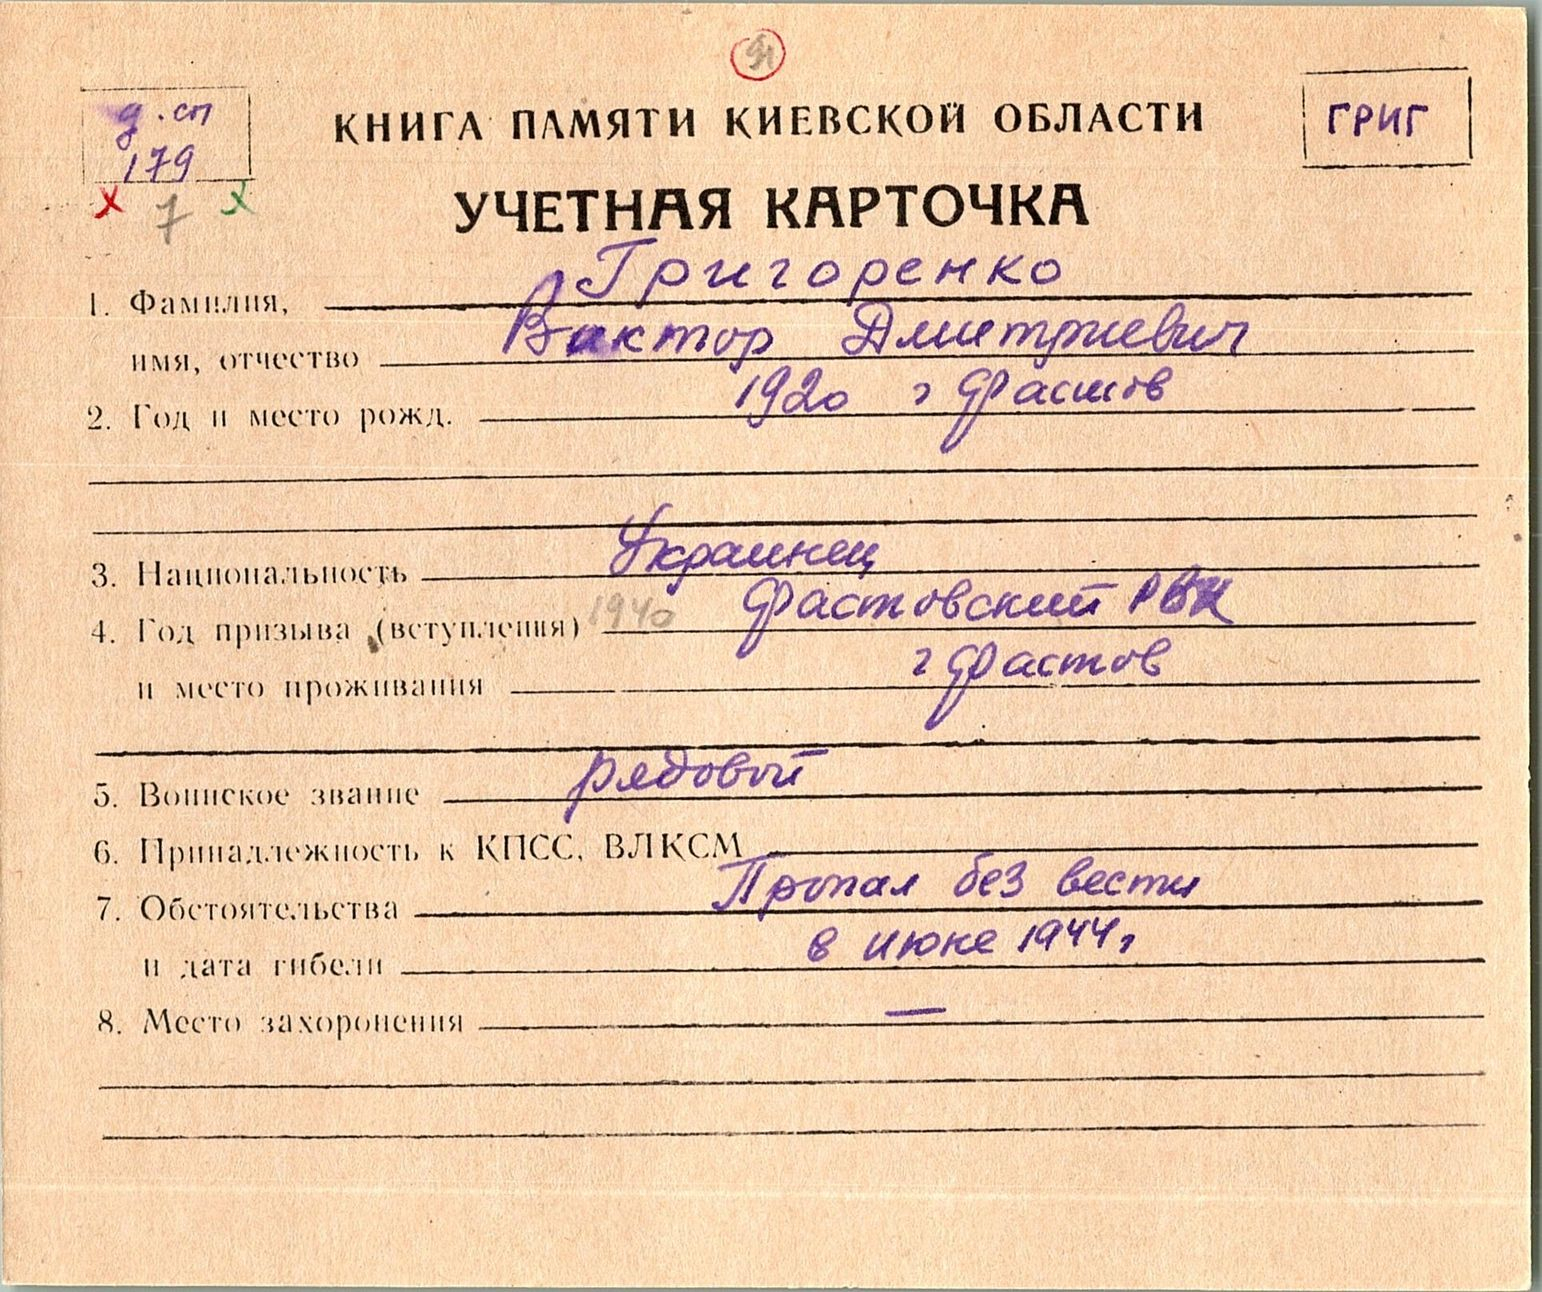 д.сп
179
7
КНИГА ПАМЯТИ КИЕВСКОЙ ОБЛАСТИ
ГРИГ
УЧЕТНАЯ КАРТОЧКА
1. Фамилия, Григоренко
имя, отчество Виктор Дмитриевич
2. Год и место рожд. 1920 г Фастов
3. Национальность Украинец
4. Год призыва (вступления) 1940 Фастовский РВК
и место проживания г Фастов
5. Воинское звание рядовой
6. Принадлежность к КПСС, ВЛКСМ
7. Обстоятельства Пропал без вести
и дата гибели в июне 1944г
8. Место захоронения —